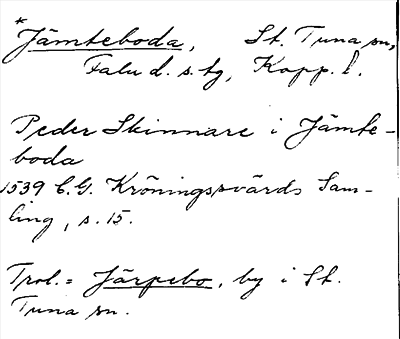 * Jämteboda, St. Tuna sn,
Falu d. s. tg, Kopp. l.
Peder Skinnare i Jämte-
boda
1539 C.G. Kröningssvärds Sam-
ling, s. 15.
Trol. = Järpebo, by i St.
Tuna sn.